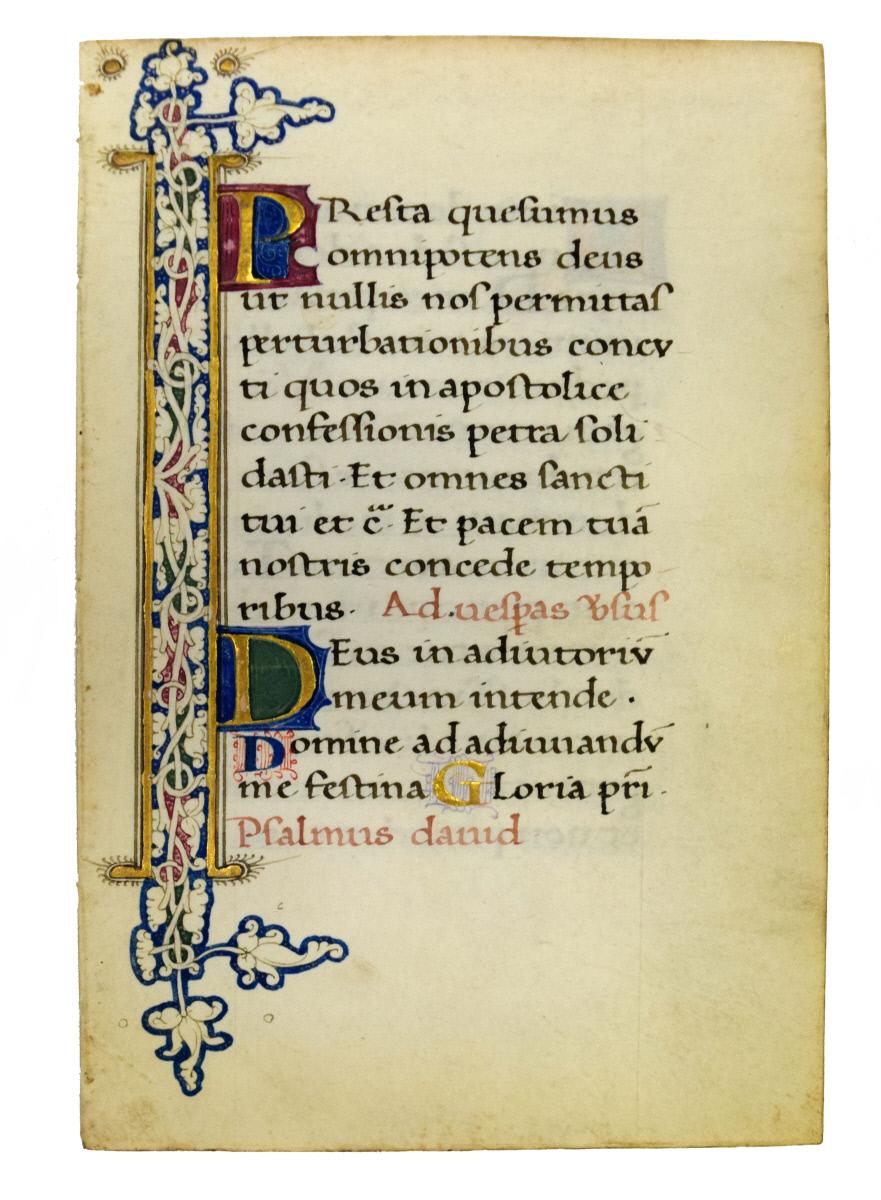 PResta quesumus
omnipotens deus
ut nullis nos permittas
perturbationibus concu
ti quos in apostolice
confessionis petra soli
dasti · Et omnes sancti
tui et c̃ · Et pacem tuã
nostris concede tempo
ribus · Ad uesp̃as v̓sus
DEus in adiutoriũ
meum intende ·
Domine ad adiuuandũ
me festina GLoria pr̃i ·
Psalmus dauid